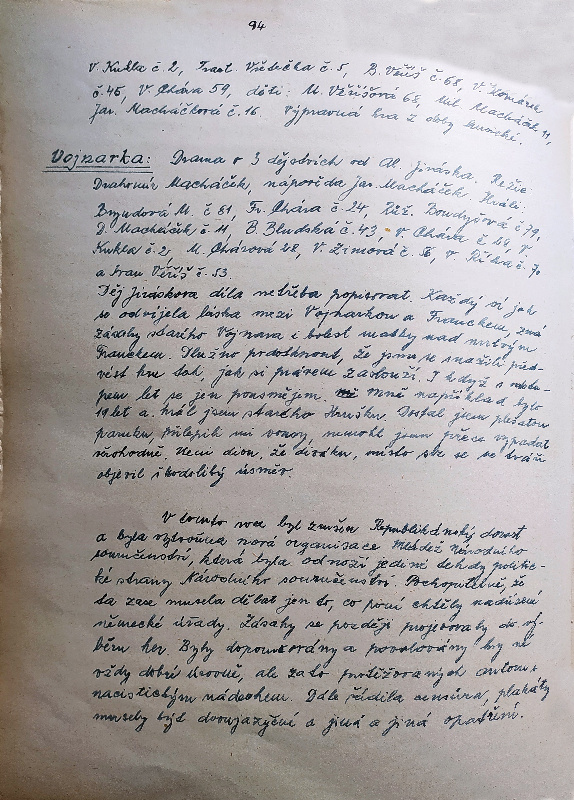 94
V. Kukla č. 2, Frant. Všetečka č. 5, B. Věříš č. 68, V. Komárek
č. 45, V. Chára 59, děti: M. Věříšová 68, Mil. Macháček 11,
Jar. Macháčková č. 16. Výpravná hra z doby husické.
Vojnarka: Drama o 3 dějstvích od Al. Jiráska. Režie
Drahomír Macháček, nápověda Jar. Macháček. Hráli:
Bryndová M. č 61, Fr. Chára č. 24, Růž. Boudyšová č 79,
D. Macháček č. 11, B. Bludská č. 43, V. Chára č. 24, V.
Kukla č. 2, M. Chárová 28, V. Zimová č. 56, V. Říha č. 70
a Frant Věříš č. 53.
Děj Jiráskova díla netřeba popisovat. Každý ví jak
se odvíjela láska mezi Vojnarkou a Franckem, zná
zásahy starého Vojnara i bolest matky nad mrtvým
Franckem. Nutno podotknout, že jsme se snažili před-
vést hru tak, jak si právem zaslouží. I když s odstu-
pem let se jen pousmějem. Mně například bylo
19 let a hrál jsem starého Hrušku. Dostal jsem plešatou
paruku, přilepili mi vousy, nemohl jsem přece vypadat
důvohodně. Není divu, že divákům, místo slz se ve tváři
objevil škodolibý úsměv.
V tomto roce byl zrušen Republikánský dorost
a byla vytvořena nová organisace Mládež Národního
souručenství, která byla odnoží jediné tehdy politic-
ké strany Národního souručenství. Pochopitelně, že
ta zase musela dělat jen to, co páni chtěly nadřízené
německé úřady. Zásahy se později projevovaly do vý-
běru her. Byly doporučovány a povolovány hry ne
vždy dobré úrovně, ale zato protižovaných autorů s
nacistickým nádechem. Dále řádila censura, plakáty
musely být dvoujazyčné a jiná a jiná opatření.